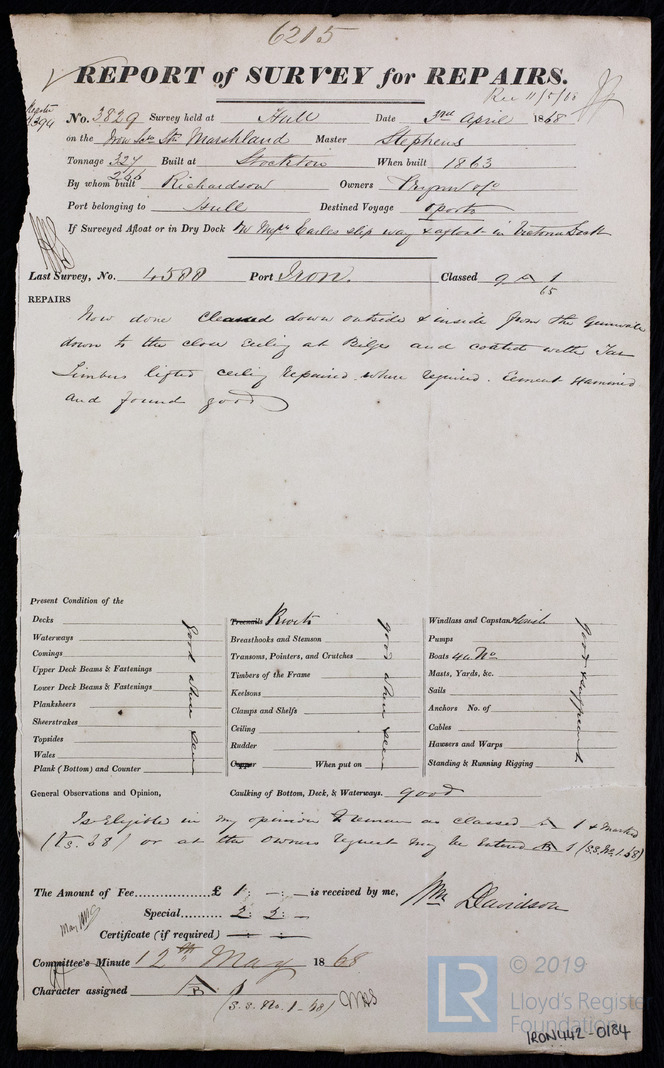 6215
REPORT of SURVEY for REPAIRS.
Rec 11/5/68
No. 3829 Survey held at Hull Date 3rd April 1868
on the Marshland Master Stephens
Tonnage 327 Built at Stockton When built 1863
266
By whom built Richardson Owners
Port belonging to Hull Destined Voyage
If Surveyed Afloat or in Dry Dock In Messrs Earles slip way & afloat in Victoria Dock
Last Survey, No. 4588 Port Iron. Classed 9 A 1
65
REPAIRS
Now done cleaned down outside & inside from the Gunwale
down to the close ceiling at Bilges and coated with Tar
Limbers lifted ceiling repaired where required. Cement examined
and found good
Present Condition of the
Decks
Waterways
Comings
Upper Deck Beams & Fastenings
Lower Deck Beams & Fastenings
Planksheers
Sheerstrakes
Topsides
Wales
Plank (Bottom) and Counter
good where seen
Treenails Rivets
Breasthooks and Stemson
Transoms, Pointers, and Crutches
Timbers of the Frame
Keelsons
Clamps and Shelfs
Ceiling
Rudder
Copper When put on
good where seen
Windlass and Capstan
Pumps
Boats 4 in No
Masts, Yards, &c.
Sails
Anchors No. of
Cables
Hawsers and Warps
Standing & Running Rigging
good & sufficient
General Observations and Opinion, Caulking of Bottom, Deck, & Waterways. good
Is Eligible in my opinion to remain as classed A 1 & marked
(Ts. 68) or at the Owners request may be Entered B 1 (S.S. No. 1. 68)
The Amount of Fee £ 1 : - : - is received by me, Wm Davidson
Special 2 : 2 : -
Certificate (if required)
Committee's Minute 12th May 1868
Character assigned A B 1
(S.S. No. 1-68)
LR © 2019
Lloyd's Register
Foundation
IRON442-0184